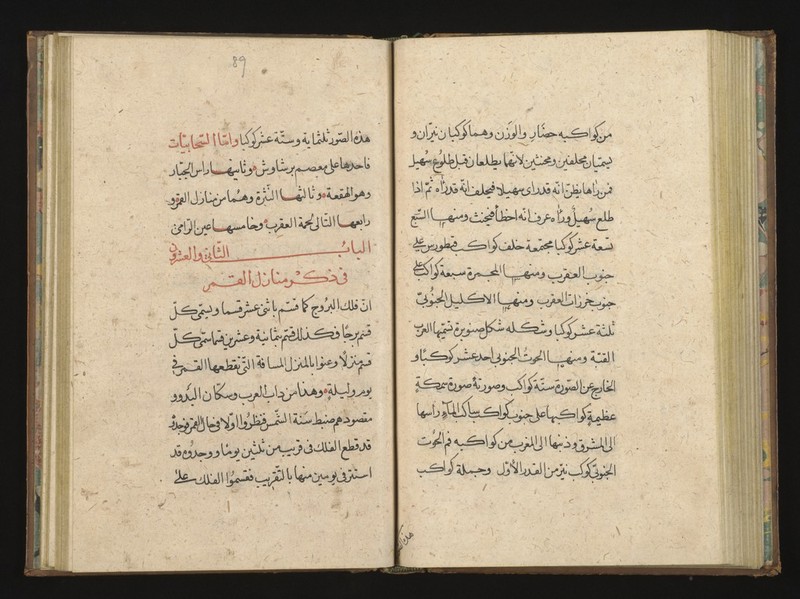 من كواكبه حضار والوزن وهما كوكبان نيران و
يسميان محلفين ومحنثين لانهما يطلعان قبل طلوع سهيل
فمن رآها يظن انه قد رأى سهيلا فيحلف انه قد رآه ثم اذا
طلع سهيل ورآه عرف انه اخطأ فيحنث ومنها السبع
تسعة عشر كوكبا مجتمعة خلف كواكب قيطورس على
جنوب العقرب ومنها المجمرة سبعة كواكب على
جنوب خرزات العقرب ومنها الاكليل الجنوبي
ثلثة عشر كوكبا وشكله شكل صنوبرة تسميها العرب
القبة ومنها الحوت الجنوبي احد عشر كوكبا و
الخارج عن الصورة ستة كواكب وصورته صورة سمكة
عظيمة كواكبها على جنوب كواكب ساكب الماء راسها
الى المشرق وذنبها الى المغرب من كواكبه فم الحوت
الجنوبي كوكب نير من القدر الاول وجملة كواكب
89
هذه الصور ثلثماية وستة عشر كوكبا واما السحابيات
فاحدها على معصم برشاوش وثانيها راس الجبار
وهو الهقعة وثالثها النثرة وهما من منازل القمر و
رابعها التالى لحمة العقرب وخامسها عين الرامى
الباب الثانى والعشرون
فى ذكر منازل القمر
ان فلك البروج كما قسم باثنى عشر قسما ويسمى كل
قسم برجا فكذلك قسم بثمانية وعشرين قسما سمى كل
قسم منزلا وعنوا بالمنزل المسافة التى يقطعها القمر فى
يوم وليلة وهذا من داب العرب وسكان البدو و
مقصودهم ضبط سنة الشمس فنظروا اولا فى حال القمر فوجدوه
قد قطع الفلك فى قريب من ثلثين يوما ووجدوه قد
استتر فى يومين منها بالتقريب فقسموا الفلك على